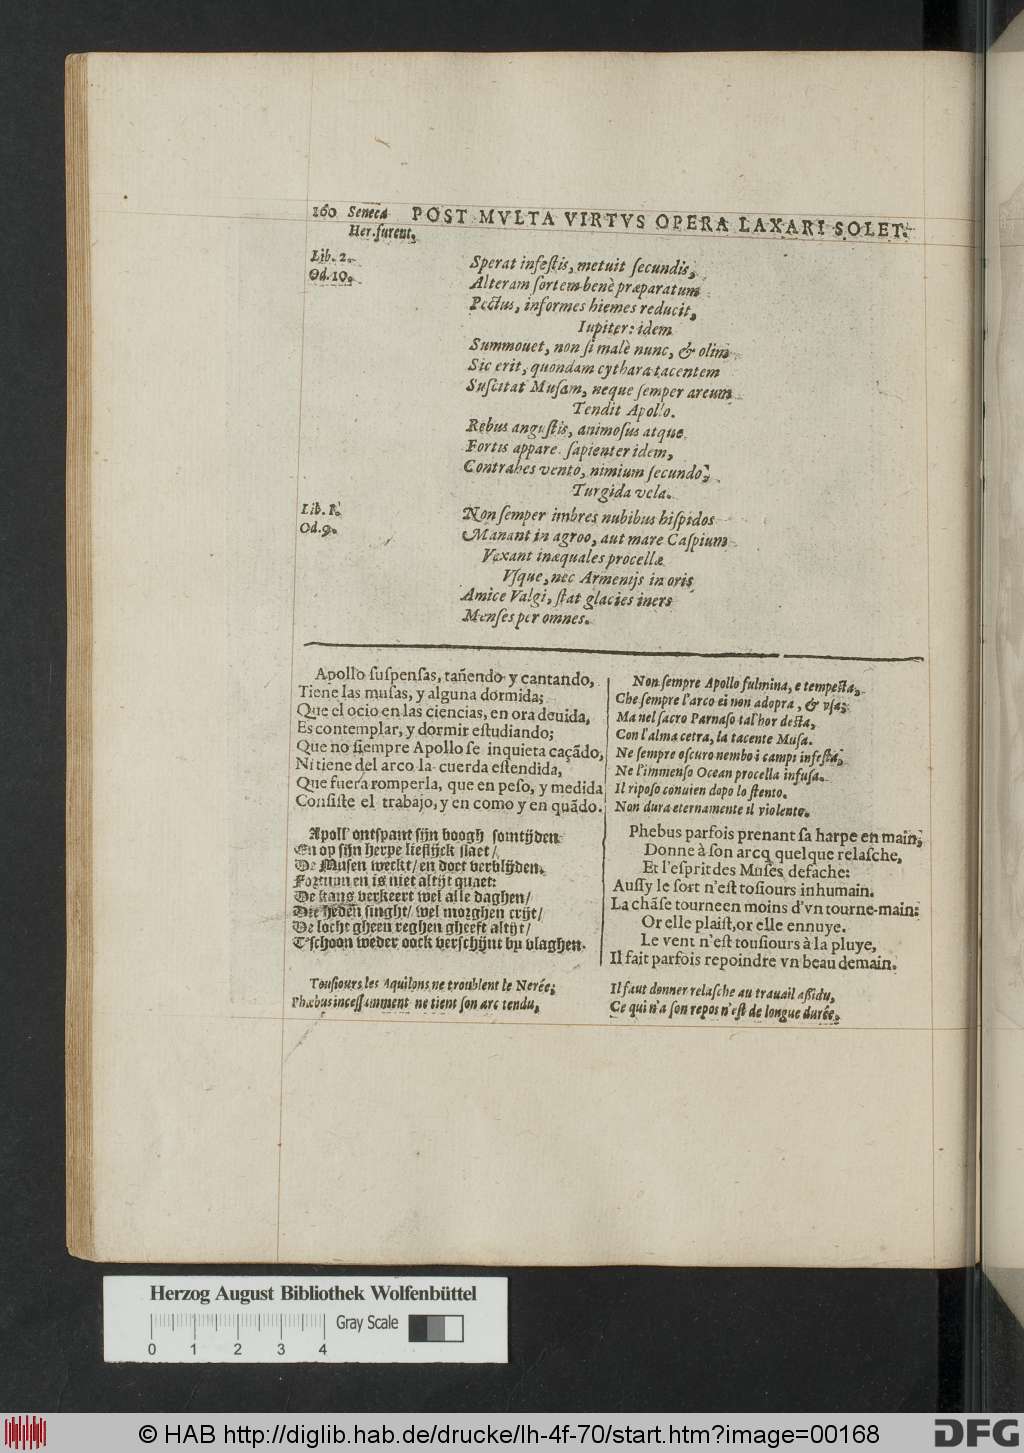 160 Seneca POST MVLTA VIRTVS OPERA LAXARI SOLET.
Her. furent.
Lib. 2.
Od. 10.
Sperat infeſtis, metuit ſecundis,
Alteram ſortem benè præparatum
Pectus, informes hiemes reducit,
Iupiter: idem
Summouet, non ſi malè nunc, & olim
Sic erit, quondam cythara tacentem
Suſcitat Muſam, neque ſemper arcum
Tendit Apollo.
Rebus anguſtis, animoſus atque
Fortis appare. ſapienter idem,
Contrahes vento, nimium ſecundo,
Turgida vela.
Lib. 1.
Od. 9.
Non ſemper imbres nubibus hiſpidos
Manant in agroo, aut mare Caſpium
Vexant inæquales procellæ
Vſque, nec Armenijs in oris
Amice Valgi, ſtat glacies iners
Menſes per omnes.
Apollo ſuſpenſas, tañendo y cantando,
Tiene las muſas, y alguna dormida;
Que el ocio en las ciencias, en ora deuida,
Es contemplar, y dormir eſtudiando;
Que no ſiempre Apollo ſe inquieta caçādo,
Ni tiene del arco la cuerda eſtendida,
Que fuera romperla, que en peſo, y medida
Conſiſte el trabajo, y en como y en quādo.
Apoll' ontſpant ſijn boogh ſomtijden
En op ſijn herpe lieflijck ſlaet/
De Muſen weckt/ en doet verblijden.
Fortuun en is niet altijt quaet:
De kans verkeert wel alle daghen/
Die heden ſinght/ wel morghen crijt/
De locht gheen reghen gheeft altijt/
T'ſchoon weder oock verſchijnt by vlaghen.
Touſiours les Aquilons ne troublent le Nerée;
Phœbus inceſſamment ne tient ſon arc tendu,
Non ſempre Apollo fulmina, e tempeſta,
Che ſempre l'arco ei non adopra, & vſa;
Ma nel ſacro Parnaſo tal'hor deſta,
Con l'alma cetra, la tacente Muſa.
Ne ſempre oſcuro nembo i campi infeſta,
Ne l'immenſo Ocean procella infuſa.
Il ripoſo conuien dopo lo ſtento.
Non dura eternamente il violento.
Phebus parfois prenant ſa harpe en main,
Donne à ſon arcq quelque relaſche,
Et l'eſprit des Muſes defache:
Auſſy le ſort n'eſt toſiours inhumain.
La chāſe tourne en moins d'vn tourne-main:
Or elle plaiſt, or elle ennuye.
Le vent n'eſt touſiours à la pluye,
Il fait parfois repoindre vn beau demain.
Il faut donner relaſche au trauail aſſidu,
Ce qui n'a ſon repos n'eſt de longue durée.
Herzog August Bibliothek Wolfenbüttel
Gray Scale
0 1 2 3 4
© HAB http://diglib.hab.de/drucke/lh-4f-70/start.htm?image=00168
DFG